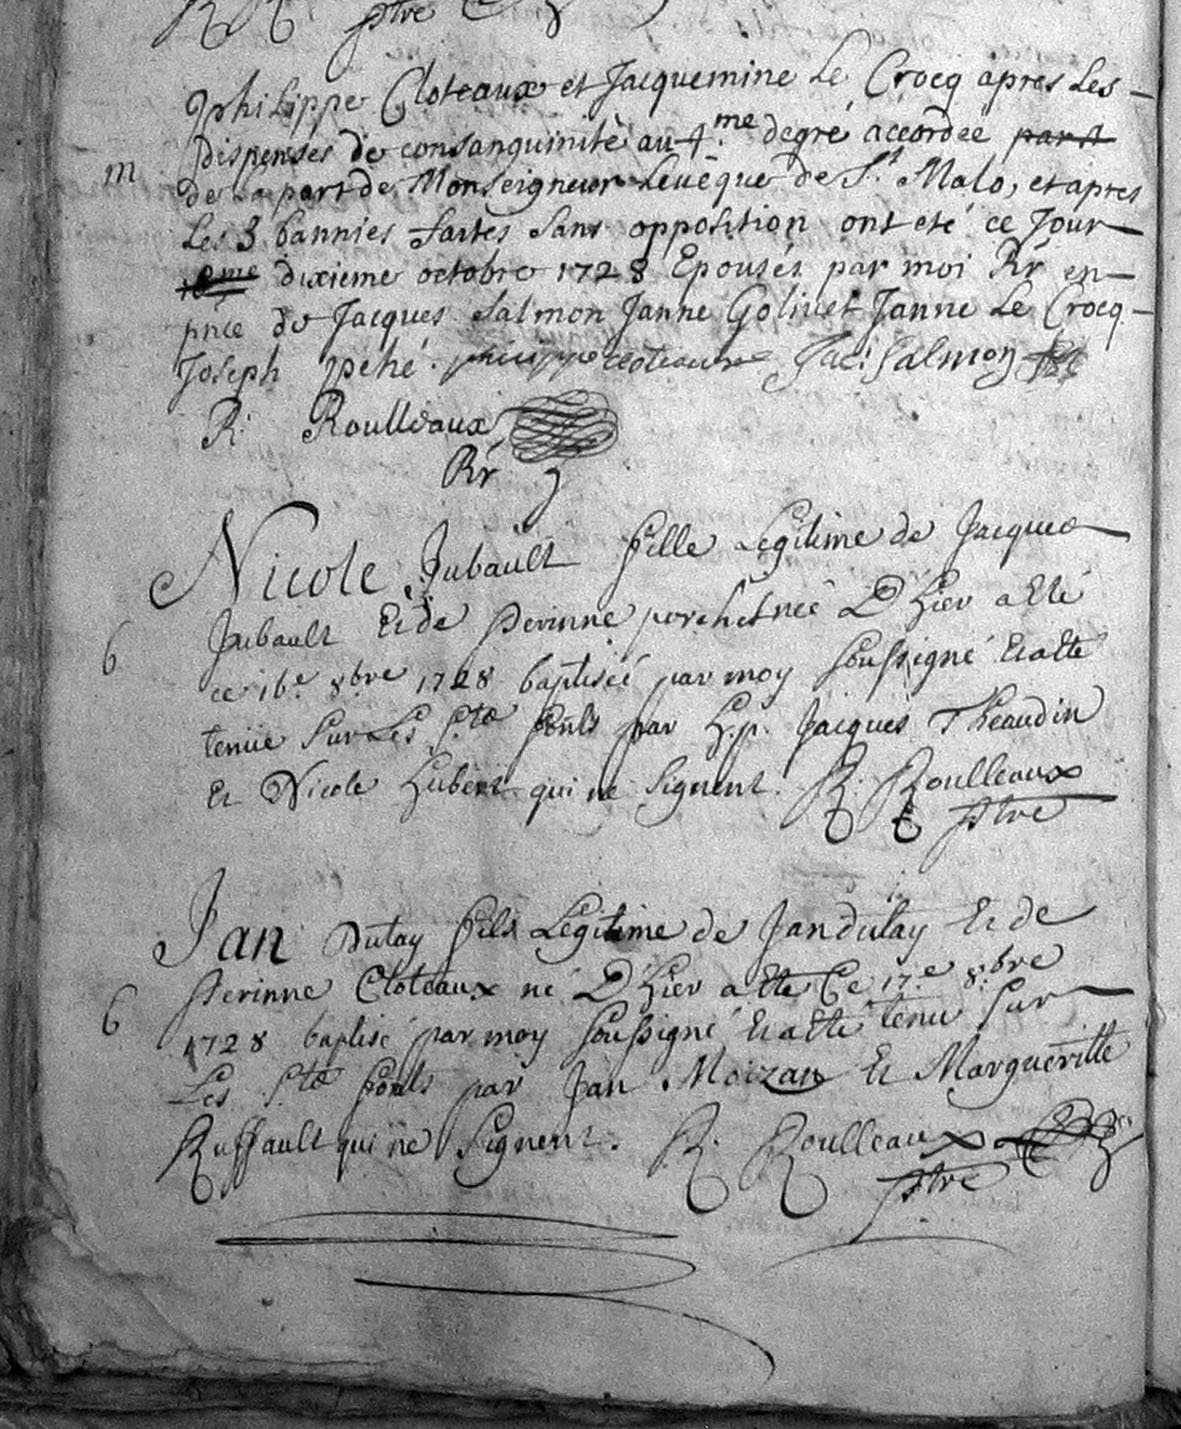 ptre
Philippe Cloteaux et Jacquemine Le Crocq apres Les
m
dispenses de consanguinité au 4.me degré accordee part
de La part de Monseigneur Levêque de St Malo, et apres
Les 3 bannies faites Sans opposition ont eté ce Jour
10me dixieme octobre 1728 Epousés par moi Rr en
pnce de Jacques Salmon Janne Golivet Janne Le Crocq
Joseph pehé. philippe cloteaux Jac: Salmon
R: Roulleaux
Rr
Nicole Jubault fille Legitime de Jacques
Jubault Et de perinne porchet née D'hier a Eté
6
ce 16.e 8bre 1728 baptiseé par moy soussigné Et a ete
tenüe sur Les Stes fonts par h.p. Jacques Theaudin
Et Nicole hubert qui ne signent. R. Roulleaux
ptre
Jan Dutay fils Legitime de Jan dutay Et de
perinne Cloteaux né D'hier a Ete Ce 17.e 8.bre
6
1728 baptisé par moy soussigné Et a Eté tenu sur
Les Stes fonts par Jan Moizan Et Margueritte
Ruffault qui ne signent. R. Roulleaux
ptre